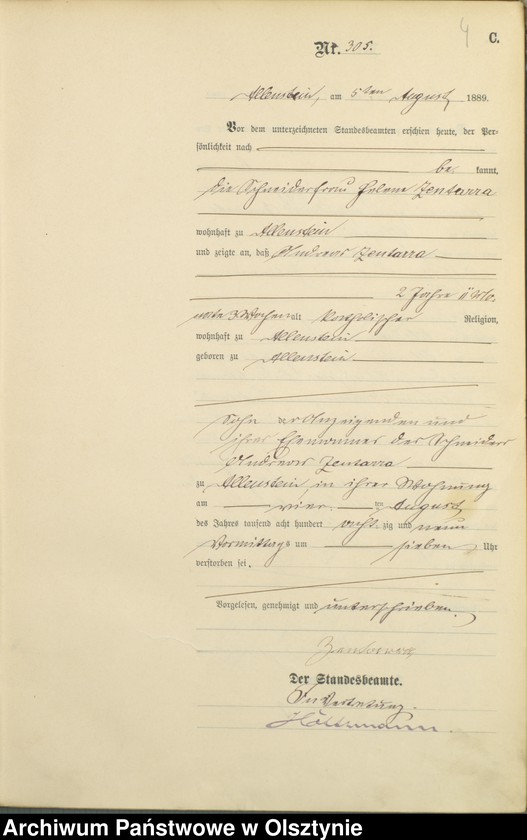 4
C.
Nr. 305.
Allenstein, am 5ten August 1889.
Vor dem unterzeichneten Standesbeamten erschien heute, der Per-
sönlichkeit nach
be kannt,
die Schneiderfrau Helene Zentarra
wohnhaft zu Allenstein
und zeigte an, daß Andreas Zentarra
2 Jahre 11 Mo-
nate 3 Wochen alt katholischer Religion,
wohnhaft zu Allenstein
geboren zu Allenstein
Sohn der Anzeigenden und
ihres Ehemannes des Schneiders
Andreas Zentarra
zu Allenstein, in ihrer Wohnung
am vier ten August
des Jahres tausend acht hundert acht zig und neun
Vormittags um sieben Uhr
verstorben sei.
Vorgelesen, genehmigt und unterschrieben.
Der Standesbeamte.
In Vertretung.
Archiwum Państwowe w Olsztynie